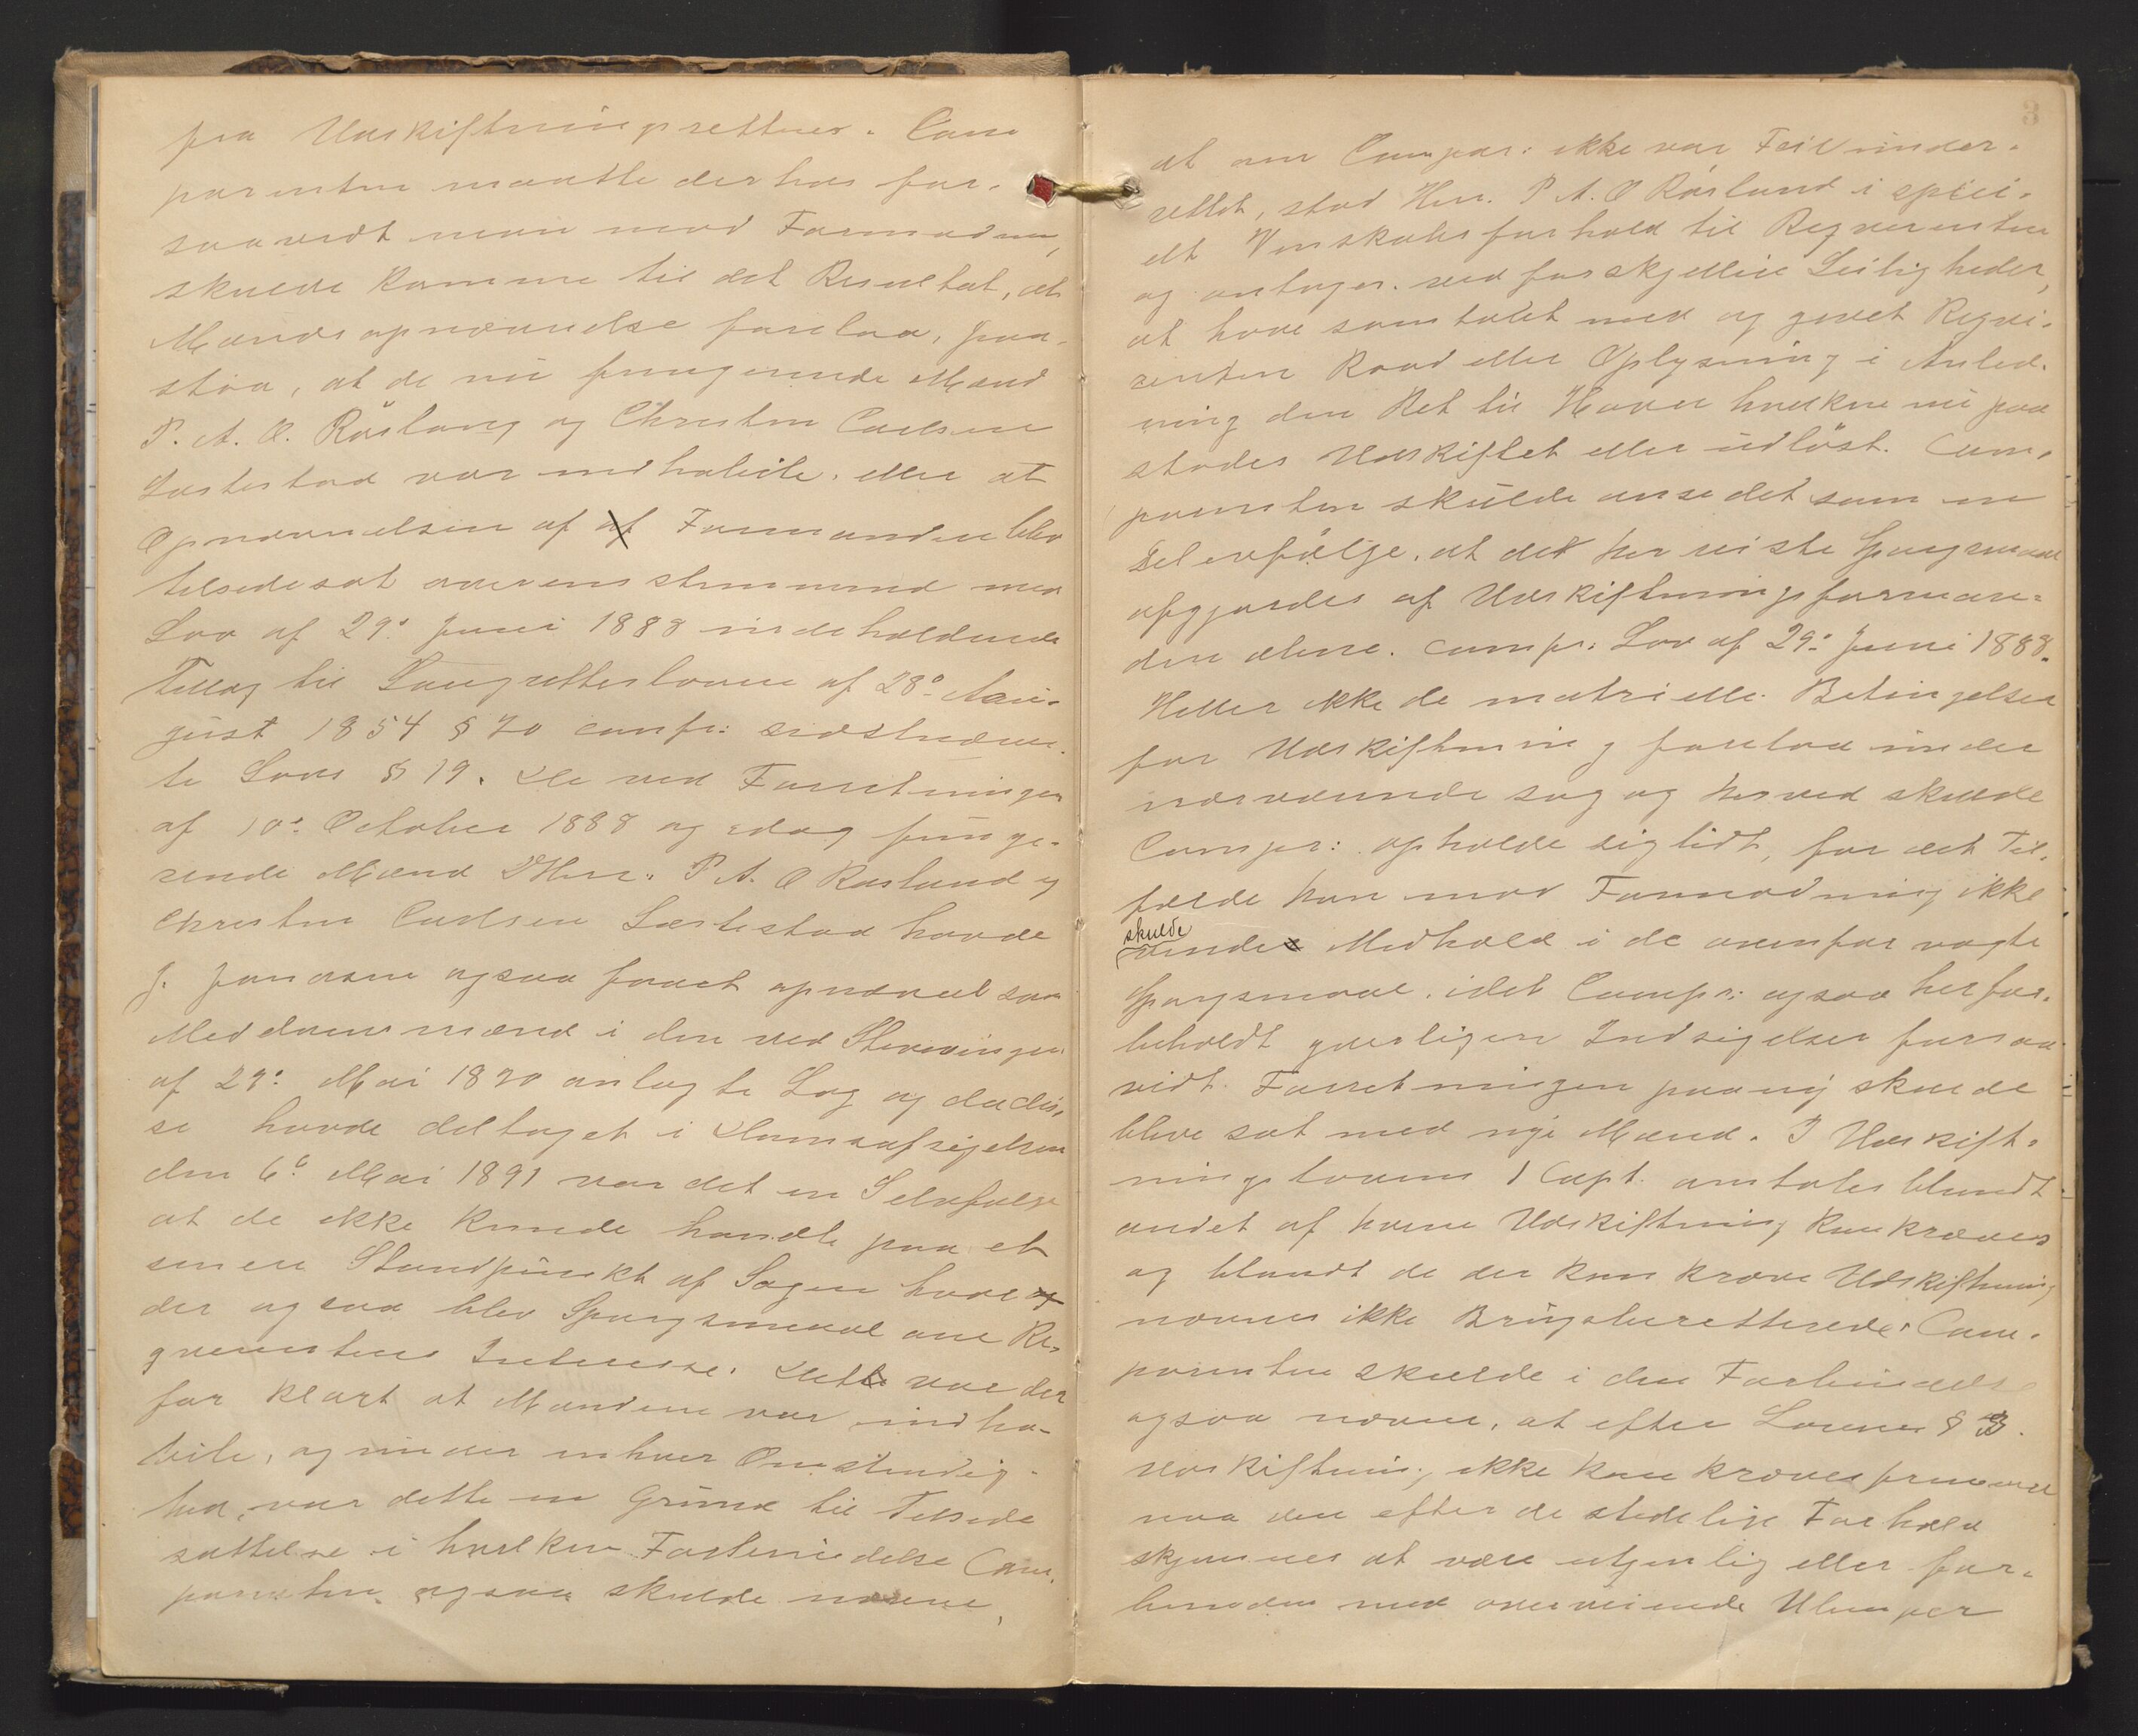 fra Udskiftningsretten. Com
parenten maatte derhos for-
saavidt man mod Formodning,
skulde komme til det Resultat, at
Mændsopnævnelse forelaa, paa-
staa, at de nu fungerende Mænd
P. A. O. Røsland og Christen Carlsen
var inhabile, eller at
Opnævnelsen af af Formanden blev
tilsidesat overensstemmende med
Lov af 29de Juni 1888 indeholdende
Tillæg til Laugretteloven af 28de Au-
gust 1854 § 70 confr: sidstnævn-
te Lovs § 19. De ved Forretningen
af 10de October 1888 og idag funge-
rende Mænd D'Herr. P. A. O Rosland og
Christen Carlsen Lastestad havde
J. Jonassen ogsaa faaet opnævnt som
Meddomsmænd i den ved Stevningen
af 29de Mai 1890 anlagte Sag og da dis-
se havde deltaget i Domsafsigelsen
den 6te Mai 1891 var det en Selvfølge
at de ikke kunde handle paa et
senere Standpunkt af Sagen hvor
der ogsaa blev Spørgsmaal om Re-
qvirentens Interesse. Dette var der
for klart at Mændene var inha-
bile, og under enhver Omstændig-
hed, var dette en Grund til Tilside
sættelse i hvilken Forbindelse Com-
parenten ogsaa skulde nævne,
3
at om Compar: ikke var Feil under-
rettet, stod Herr. P. A. O Røsland i speci-
elt Venskabsforhold til Reqvirenten
og antages ved forskjellige Leiligheder,
at have samtalet med og givet Reqvi-
renten Raad eller Oplysning i Anled-
ning den Ret til Haven hvilken nu paa
stodes Udskiftet eller udløst. Com-
parenten skulde anse det som en
Selvfølge, at det her reiste Spørgsmaal
afgjordes af Udskiftningsforman-
den alene. compr: Lov af 29de Juni 1888.
Heller ikke de matrielle Betingelser
for Udskiftning forelaa under
nærværende sag og herved skulde
Compr: opholde sig lidt, for det Til-
fælde han mod Formodning ikke
skulde
finde Medhold i de ovenfor vagte
Spørgsmaal, idet Compr: ogsaa her for-
beholdt yderligere Indsigelser forsaa
vidt Forretningen paany skulde
blive sat med nye Mænd. I Udskift-
ningslovens 1 Capt. omtales blandt
andet af hvem Udskiftning kan kræves
og blandt de der kan kræve Udskiftning
nævnes ikke Brugsberettigede. Com-
parenten skulde i den Forbindelse
ogsaa nævne, at efter Lovens § 3.
Udskiftning ikke kan kræves fremmet
naar den efter de stedelige Forhold
skjønnes at være utjenlig eller for-
bunden med overveiende Ulemper